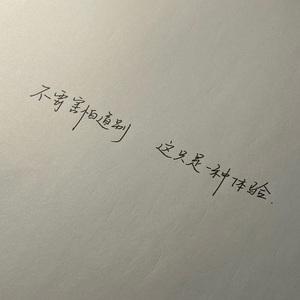 不需害怕道别 这只是一种体验.